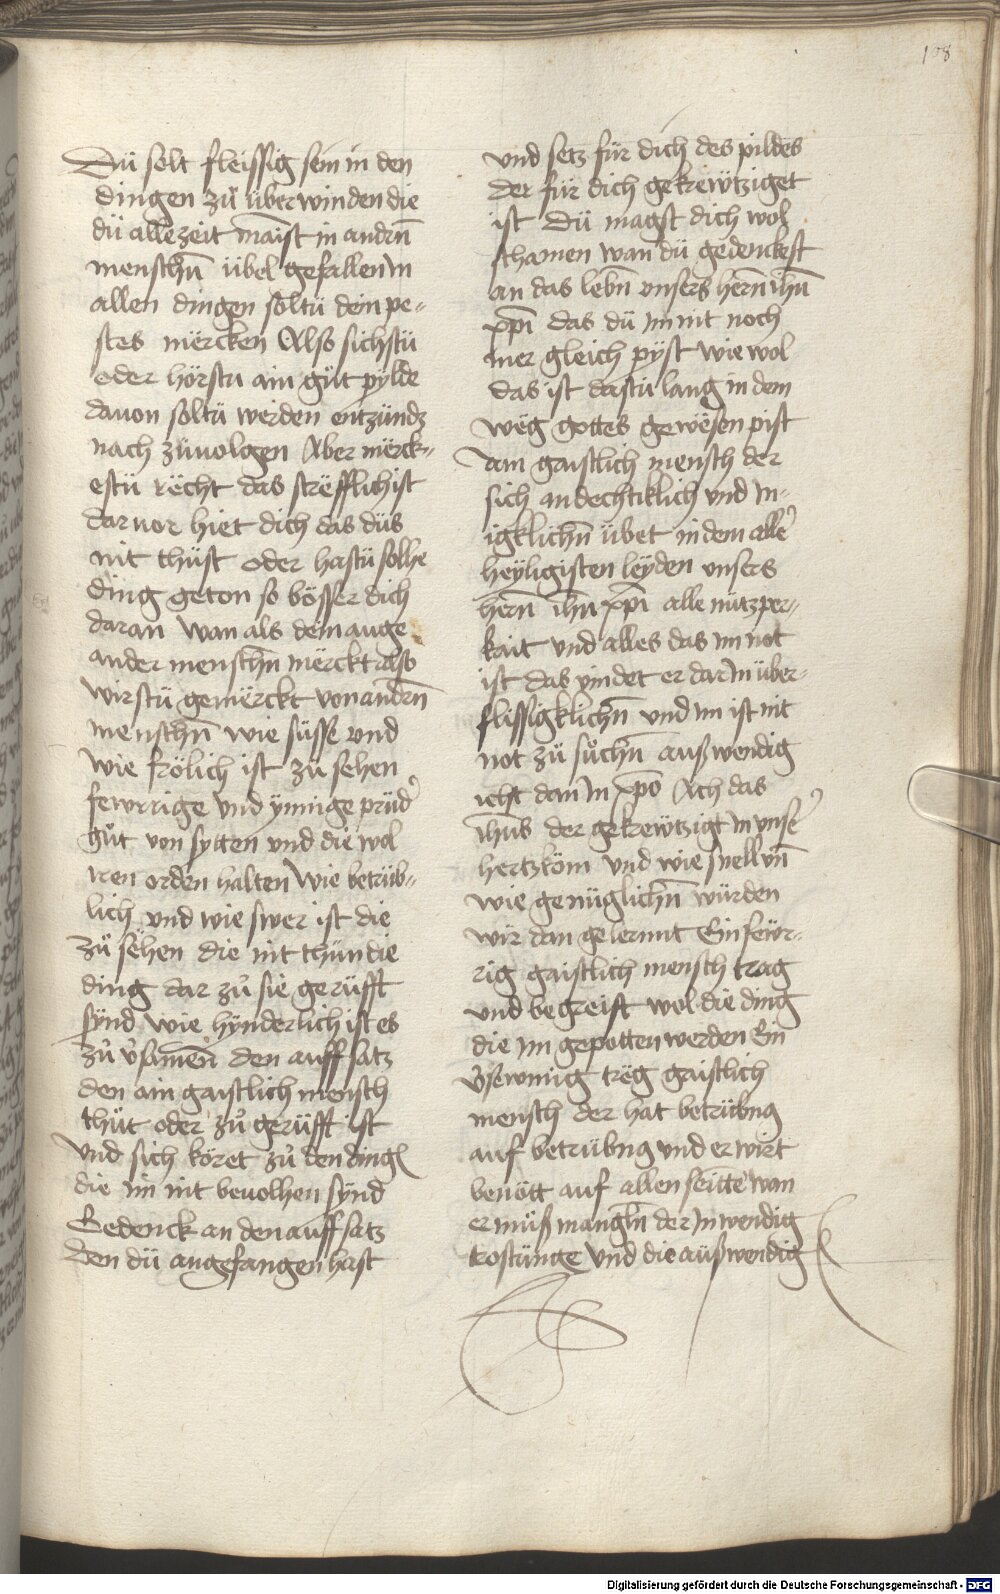 108
Dü solt fleissig sein in den
dingen zů überwinden die
dü allezeit maist in andrn̄
menschn̄ übel gefallen In
allen dingen soltü dein pe-
stes mërcken Also sichstü
oder hörstu ain gůt pylde
dauon soltü werden entzündz
nach züuolgen Aber mërck-
estü rëcht das strëfflich ist
daruor hiet dich das düs
nit thüst oder hastü solhe
ding geton so bösser dich
daran Wan als dein auge
ander menschn̄ mërckt also
wirstü gemërckt von andrn̄
menschn̄ wie süsse vnd
wie frölich ist zü sehen
fewrrige vnd ynnige prüd'
gůt von sytten vnd die wol
iren orden halten Wie betrüb-
lich vnd wie swer ist die
zů sëhen die nit thün die
ding dar zů sie gerüfft
synd wie hynderlich ist es
zů v̉samen̄ den auff satz
den ain gaistlich mensch
thůt oder zů gerüfft ist
Vnd sich köret zů den ding
die im nit beuolhen synd
Gedenck an den auff satz
den dü angefangen hast
vnd setz für dich des pildes
der für dich gekrewtziget
ist Dü magst dich wol
schamen wan dü gedenckest
an das lebn̄ vnsers hern̄ ihū
xp̄i das dü im nit noch
mer gleich pyst wie wol
das ist dastü lang in dem
wëg gottes gewësen pist
Ain gaistlich mensch der
sich andechtiklich vnd In-
igklichn̄ übet in dem alle'
heyligisten leyden vnsers
hern̄ ihū xp̄i alle nützper-
kait vnd alles das im not
ist das vindet er dar In über-
flissigklichn̄ vnd im ist nit
not zü sůchn̄ außwendig
icht dan In xp̄o Ach das
ihūs der gekrewtzigt in vnse'
hertz köm vnd wie snell vn̄
wie genüglichn̄ würden
wir dan gelernnt Ein fewr-
rig gaistlich mensch trag
vnd begreift wol die ding
die im gepotten werden Ein
v̉sewmig trëg gaistlich
mensch der hat betrübng
auf betrübng vnd er wirt
benött auf allen seitte wan
er müß mangln̄ der Inwendig
trostünge vnd die außwendig
Digitalisierung gefördert durch die Deutsche Forschungsgemeinschaft - DFG